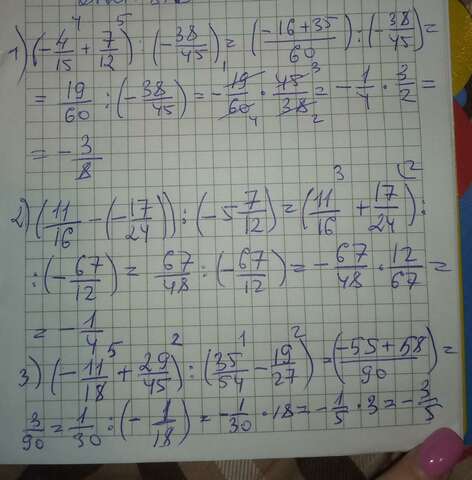 1) (-4/15 + 7/12) : (-38/45) = (-16+35/60) : (-38/45) =
= 19/60 : (-38/45) = -19/60 · 45/38 = -1/4 · 3/2 =
= -3/8
2) (11/16 - (-17/24)) : (-5 7/12) = (11/16 + 17/24) :
: (-67/12) = 67/48 : (-67/12) = -67/48 · 12/67 =
= -1/4
3) (-11/18 + 29/45) : (35/54 - 19/27) = (-55+58/90) =
3/90 = 1/30 : (-1/18) = -1/30 · 18 = -1/5 · 3 = -3/5